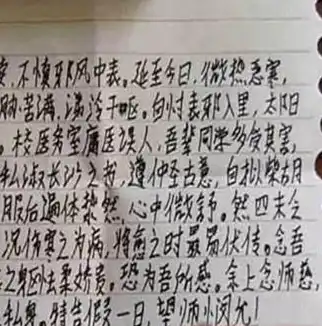 不慎邪风中表。延至今日，微热恶寒，
胸苦满，默冷干呕。自忖表邪入里，太阳
。校医务室庸医误人，吾辈同学多受其害，
私淑长沙之书，遵仲圣古意，自拟柴胡
服后遍体漐然，心中微舒。然四末会
况伤寒之为病，将愈之时最易伏传。念吾
之身躯法柔娇贵。恐为吾所感。余上念师慈，
私身。特告假一日，望师小闵允！